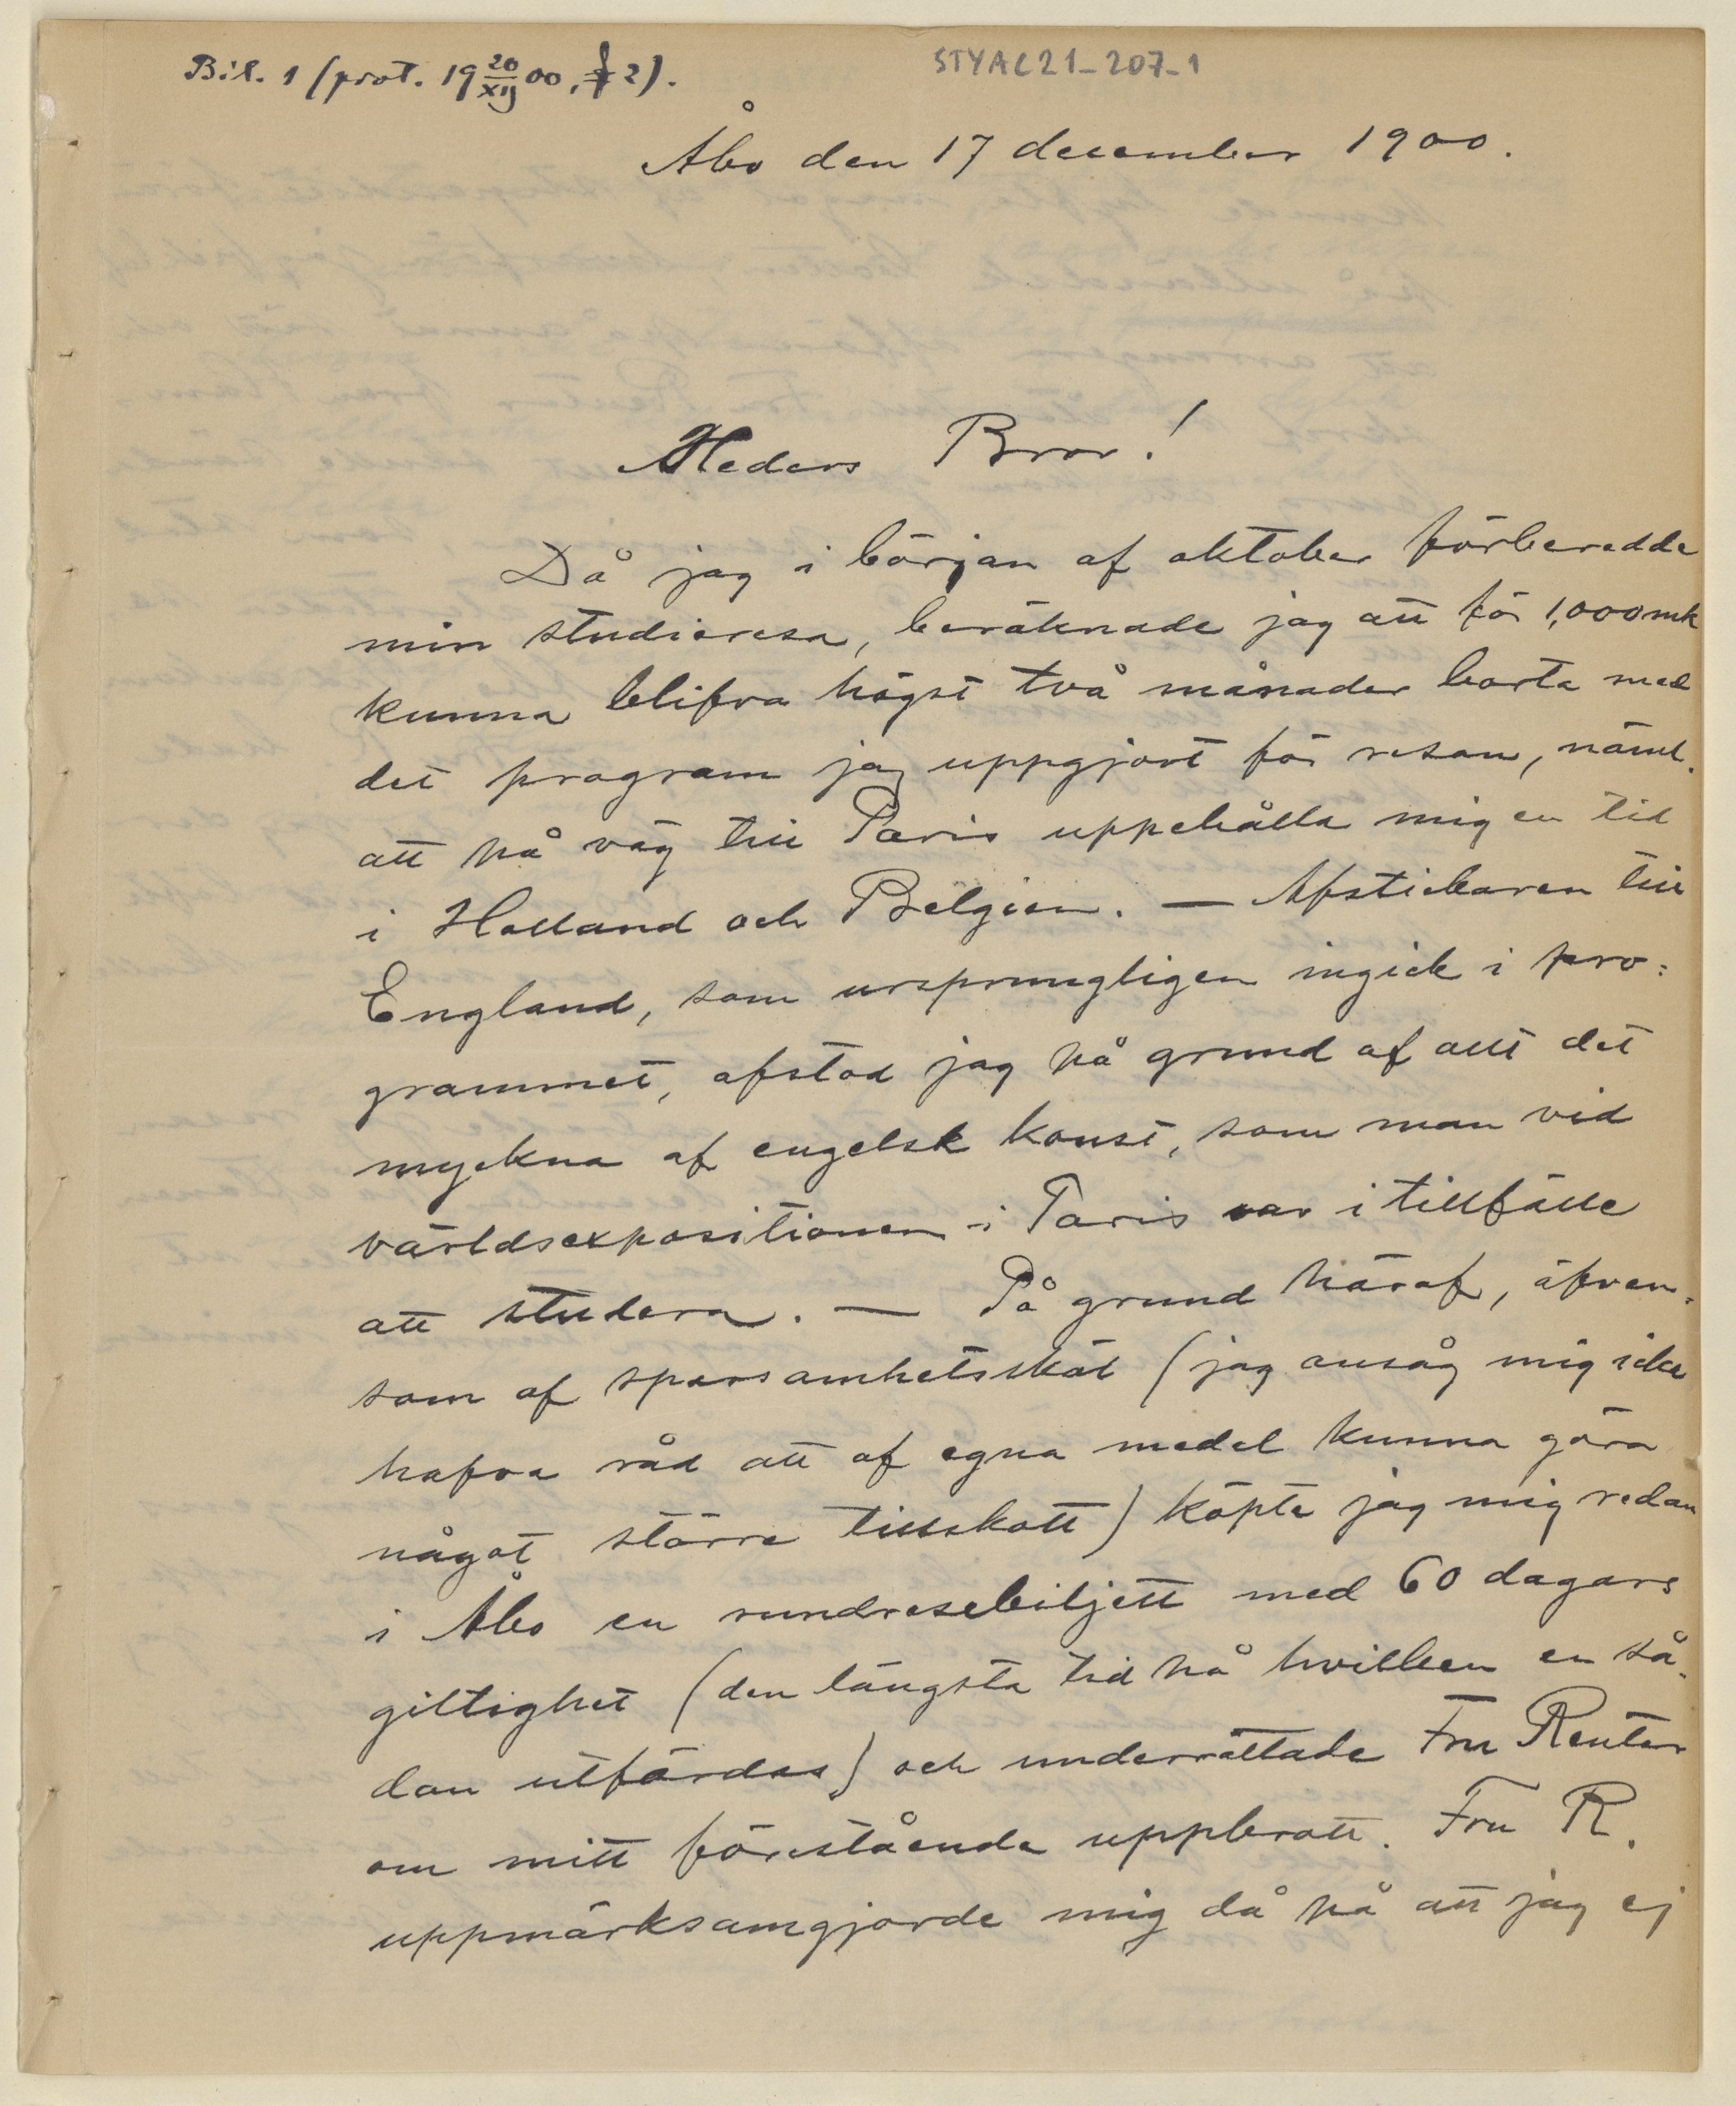 Bil. 1 (prot. 19 20/XII 00, § 2).
STYAC21_207_1
Åbo den 17 december 1900.
Heders Bror!
Då jag i början af oktober förberedde
min studieresa, beräknade jag att för 1,000 mk
kunna blifva högst två månader borta med
det program jag uppgjort för resan, näml.
att på väg till Paris uppehålla mig en tid
i Holland och Belgien. — Afstickaren till
England, som ursprungligen ingick i pro=
grammet, afstod jag på grund af allt det
myckna af engelsk konst, som man vid
världsexpositionen i Paris var i tillfälle
att studera. — På grund häraf, äfven-
som af sparsamhetsskäl (jag ansåg mig icke
hafva råd att af egna medel kunna göra
något större tillskott) köpte jag mig redan
i Åbo en rundresebiljett med 60 dagars
giltighet (den längsta tid på hvilken en så-
dan utfärdas) och underrättade Fru Reuter
om mitt förestående uppbrott. Fru R.
uppmärksamgjorde mig då på att jag ej